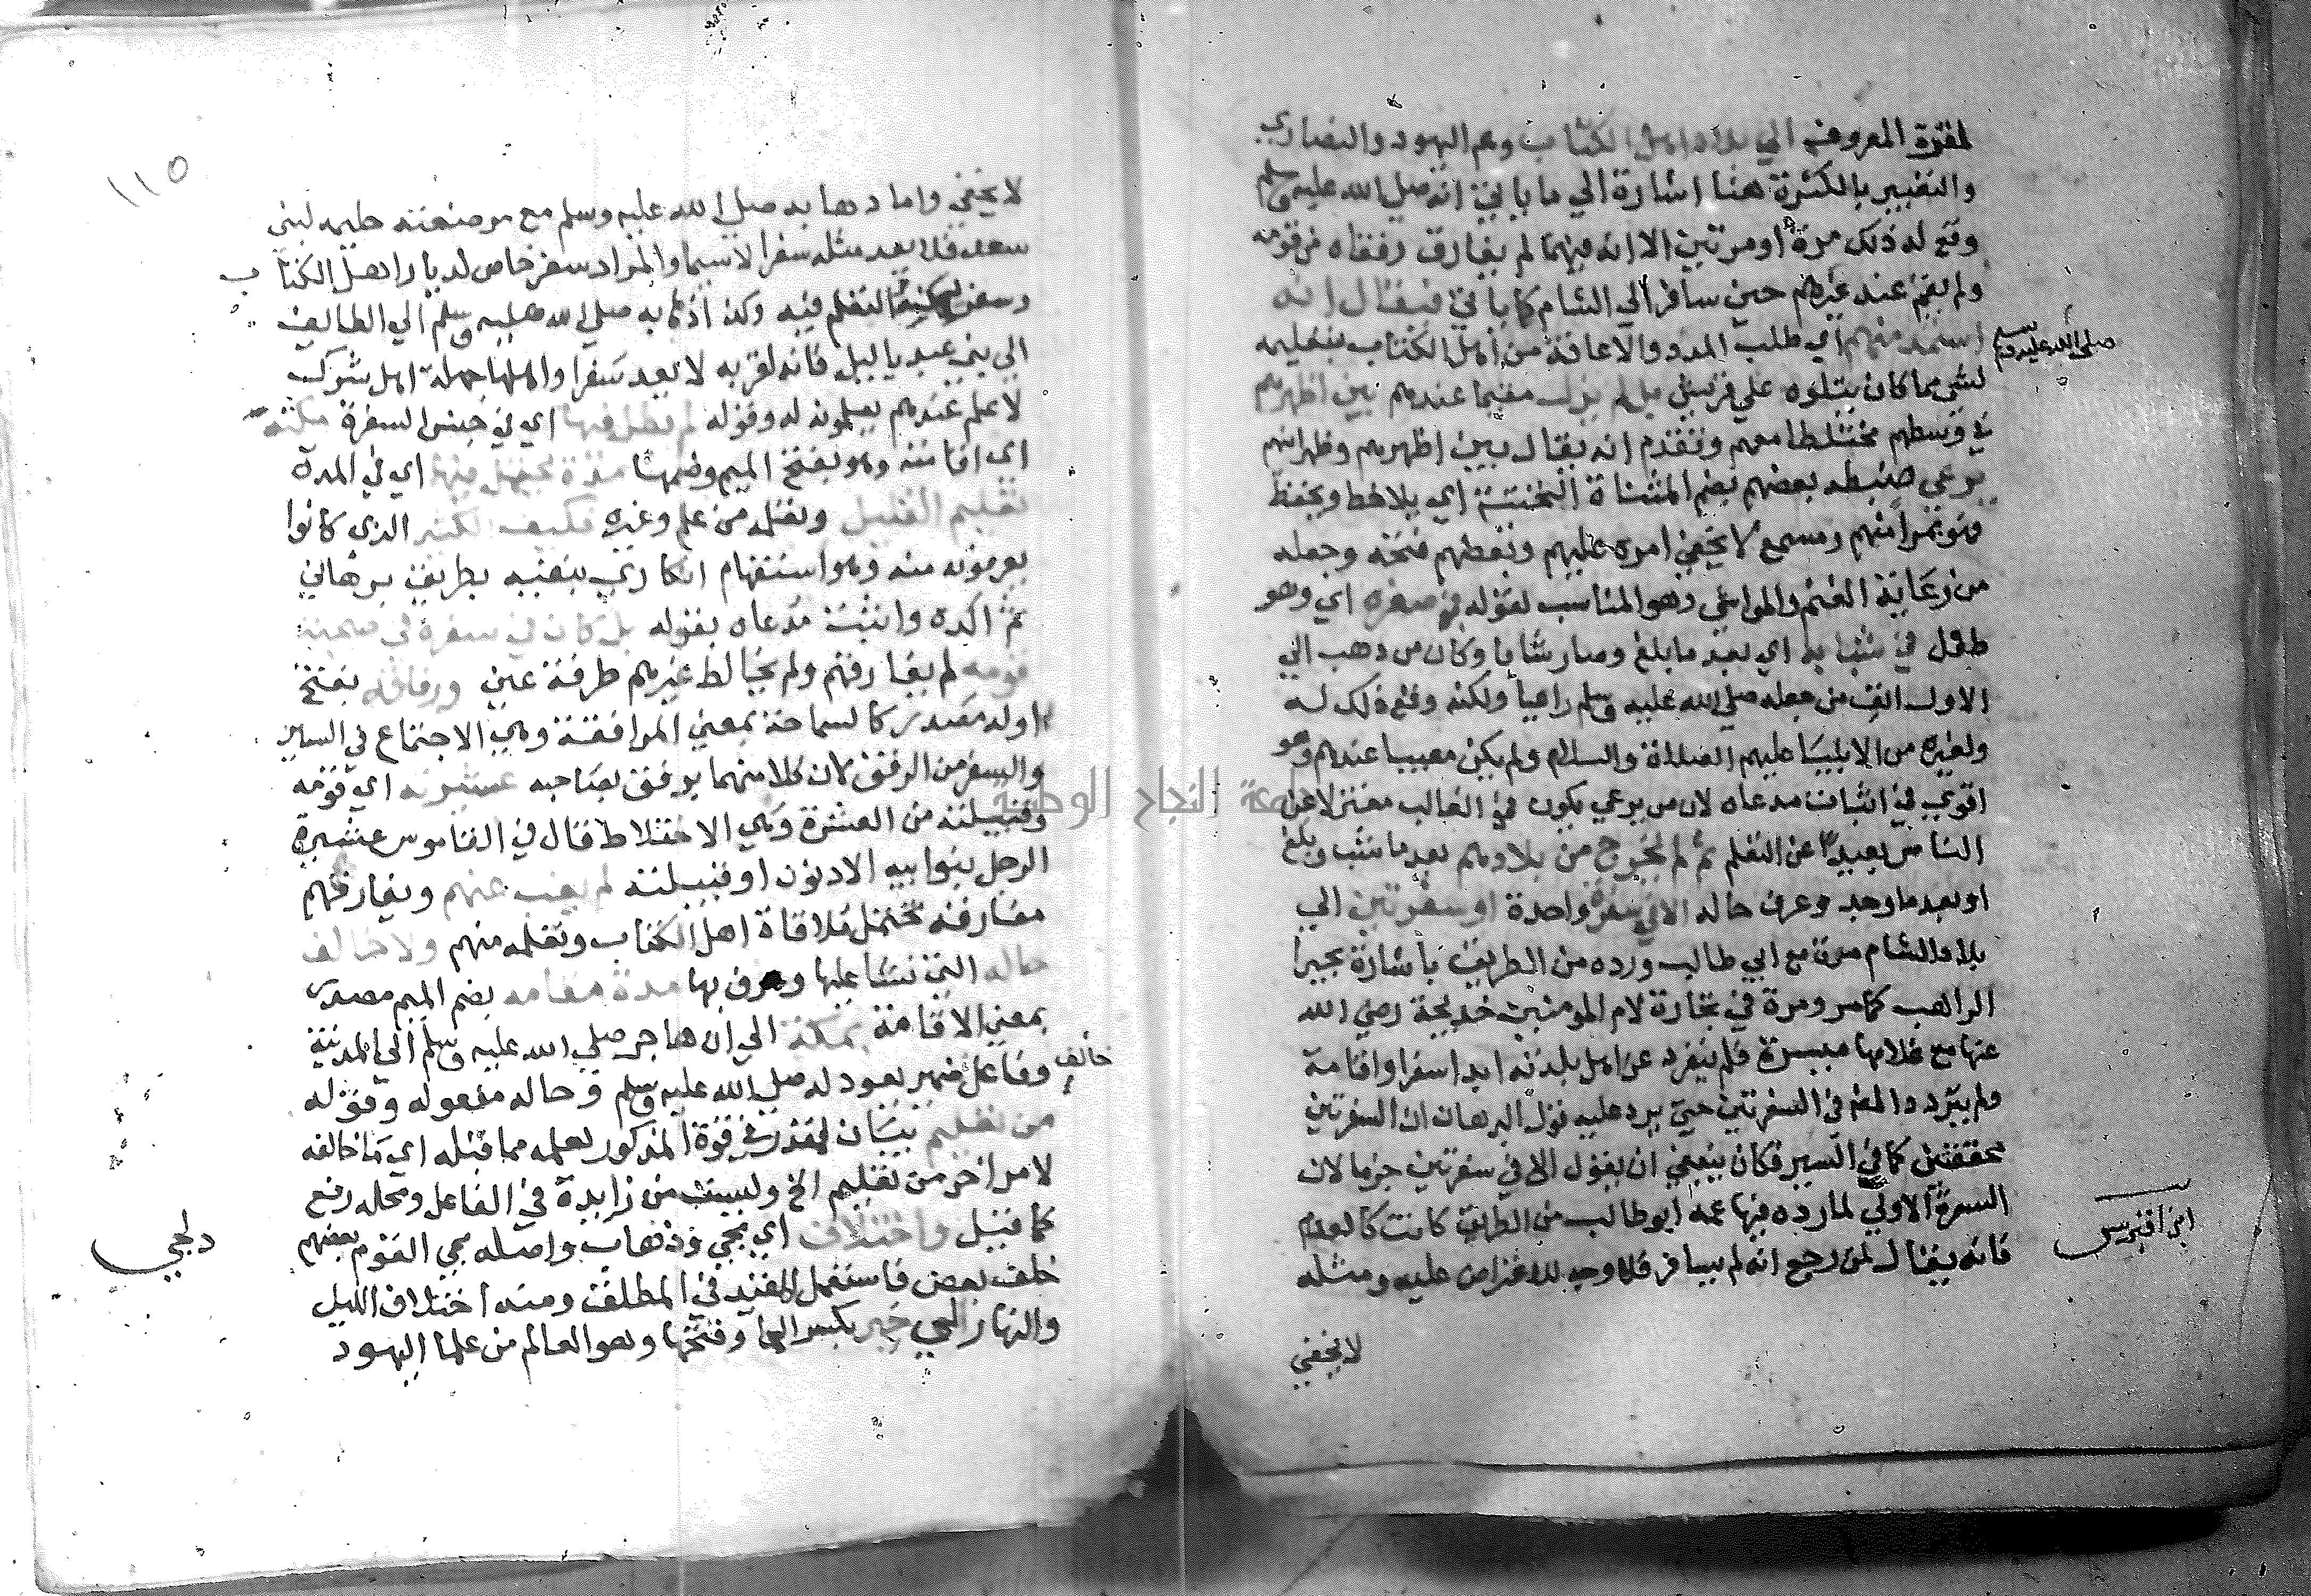 لمفرد المعروف الي بلاد اهل الكتاب وهم اليهود والنصاري
والتعبير بالكثرة هنا اشارة الي ما ياتي انه صلي الله عليه وسلم
وقع له ذلك مرة او مرتين الا انه فيهما لم يفارق رفقاه من قومه
ولم يقم عند غيرهم حين سافر الي الشام كما ياتي فيقال انه
استمد منهم اي طلب المدد والاعانة من اهل الكتاب بتعليمه
صلي الله عليه وسلم
لشي مما كان يتلوه علي قريش بل لم يزل مقيما عندهم بين اظهرهم
في وسطهم مختلطا معهم وتقدم انه يقال بين اظهرهم وظهرانيهم
يرعي ضبطه بعضهم بضم المثناة التحتية اي يلاحظ ويحفظ
فهو بمرا منهم ومسمع لا يخفي امره عليهم وبعضهم فتحه وجعله
من رعاية الغنم والمواشي وهو المناسب لقوله في صغره اي وهو
طفل في شبابه اي بعد ما بلغ وصار شابا وكان من ذهب الي
الاول انف من جعله صلي الله عليه وسلم راعيا ولكنه وقع ذلك له
ولغيره من الانبيا عليهم الصلاة والسلام ولم يكن معيبا عندهم وهو
اقوي في اثبات مدعاه لان من يرعي يكون في الغالب معتزلا عن
الناس بعيدا عن التعلم ثم لم يخرج من بلادهم بعد ما شب وبلغ
او بعد ما وجد وعرف حاله الا في سفرة واحدة او سفرتين الي
بلاد الشام مرة مع ابي طالب ورده من الطريق باشارة بحيرا
الراهب كما مر ومرة في تجارة لام المومنين خديجة رضي الله
عنها مع غلامها ميسرة فلم ينفرد عن اهل بلدته ابدا سفرا واقامة
ولم يتردد المص في السفرتين حتي يرد عليه قول البرهان ان السفرتين
محققتين كما في السير فكان ينبغي ان يقول الا في سفرتين جزما لان
السفرة الاولي لما رده فيها عمه ابو طالب من الطريق كانت كالعدم
ابن اقبرس
فانه يقال لمن رجع انه لم يسافر فلا وجه للاعتراض عليه ومثله
لا يخفي
١١٥
لا يخفي واما ذهابه صلي الله عليه وسلم مع مرضعته حليمه لبني
سعد فلا يعد مثله سفرا لا سيما والمراد سفر خاص لديار اهل الكتاب
وسفر يمكن التعلم فيه وكذا ذهابه صلي الله عليه وسلم الي الطايف
الي بني عبد ياليل فانه لقربه لا يعد سفرا واهلها جهلة اهل شرك
لا علم عندهم يعلمونه له وقوله لم يطل فيها اي في جنس السفرة مكثه
اي اقامته وهو بفتح الميم وضمها مدة يحتمل فيها اي في المدة
تعليم القليل ونقله من علم وغيره فكيف الكثير الذي كانوا
يعرفونه منه وهو استفهام انكاري بنفيه بطريق برهاني
ثم اكده واثبت مدعاه بقوله بل كان في سفره في صحبة
قومه لم يفارقهم ولم يخالط غيرهم طرفة عين ورفاقة بفتح
اوله مصدر كالسماحة بمعني المرافقة وهي الاجتماع في السير
والسفر من الرفق لان كلا منهما يرفق بصاحبه عشيرته اي قومه
وقبيلته من العشرة وهي الاختلاط قال في القاموس عشيرة
الرجل بنو ابيه الادنون او قبيلته لم يغب عنهم ويفارقهم
مفارقة تحتمل ملاقاة اهل الكتاب وتعلمه منهم ولا خالف
حاله التي نشا عليها وعرف بها مدة مقامه بضم الميم مصدر
بمعني الاقامة بمكة الي ان هاجر صلي الله عليه وسلم الي المدينة
وفاعل ضمير يعود له صلي الله عليه وسلم وحاله مفعوله وقوله
خالف
من تعليم بيان لمقدر في قوة المذكور لعلمه مما قبله اي ما خالفه
لامر اخر من تعليم الخ وليست من زايدة في الفاعل ومحله رفع
كما قيل واختلاف اي مجي وذهاب واصله مجي القوم بعضهم
دلجي
خلف بعض فاستعمل المقيد في المطلق ومنه اختلاف الليل
والنهار الي حبر بكسر الحا وفتحها وهو العالم من علما اليهود